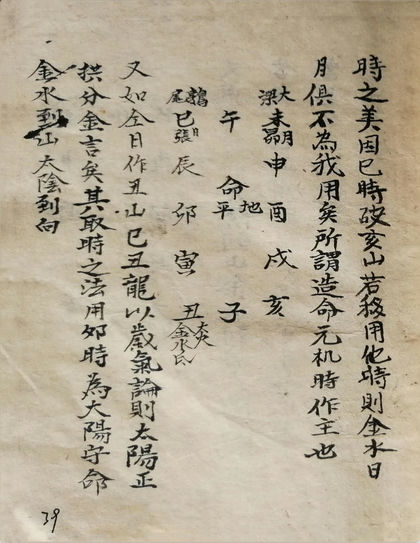 時之美因巳時破亥山若移用他時則金水日
月俱不為我用矣所謂造命元机時作主也
大梁未昴月申酉戌亥
午命平地子
鶉尾巳張日辰卯寅丑金水氐
又如全日作丑山巳丑龍以歲氣論則太陽正
拱分金言矣其取時之法用夘時為大陽守命
金水到山太陰到向
39